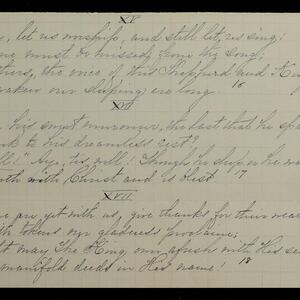 XV
, let us worship, and still let us sing!
one must be missed from the song;
thers, the ones of this Shepherd and Ki
waken our sleeping ere long. 16
XVI
his sweet murmur, the last that he sp
to his dreamless rest?
" Aye, 'tis well! Though he sleep
with Christ and is blest 17
XVII
are yet with us, give thanks for their
tokens our gladness proclaim;
may The King, our afresh with His se
manifold deeds in His name! 18